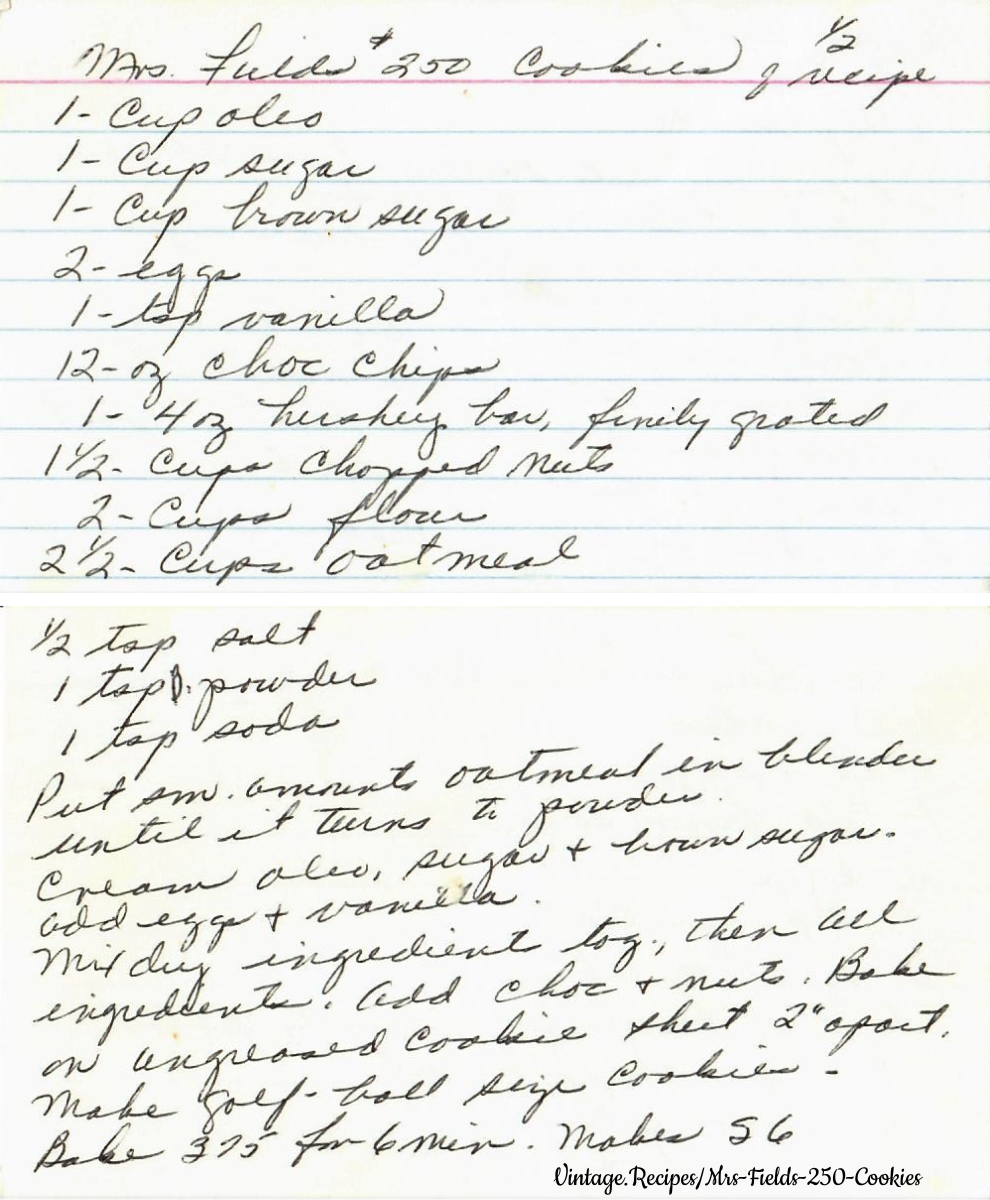 Mrs. Fields $250 Cookies } 1/2 recipe
1- Cup oleo
1- Cup sugar
1- Cup brown sugar
2- eggs
1- tsp vanilla
12- oz choc chips
1- 4 oz hershey bar, finily grated
1 1/2- Cups chopped nuts
2- Cups flour
2 1/2- Cups oatmeal
1/2 tsp salt
1 tsp b. powder
1 tsp soda
Put sm. amounts oatmeal in blender
until it turns to powder.
Cream oleo, sugar + brown sugar.
add eggs + vanilla.
Mix dry ingredient tog., then all
ingredients. add choc + nuts. Bake
on ungreased cookie sheet 2" apart.
Make golf-ball size cookies -
Bake 375 for 6 min. Makes 56
Vintage.Recipes/Mrs-Fields-250-Cookies